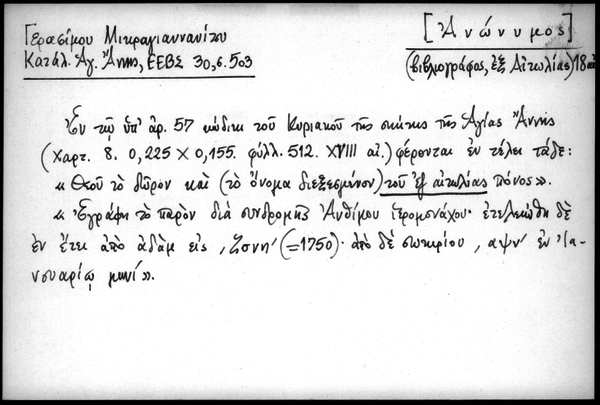 Γερασίμου Μικραγιαννανίτου
Κατάλ. Ἁγ. Ἄννης, ΕΕΒΣ 30, σ. 503
[Ἀνώνυμος]
(βιβλιογράφος, ἐξ Αἰτωλίας) 18
Ἐν τῷ ὑπ' ἀρ. 57 κώδικι τοῦ Κυριακοῦ τῆς σκήτης τῆς Ἁγίας Ἄννης
(χαρτ. 8. 0,225 × 0,155. φύλλ. 512. XVIII αἰ.) φέρονται ἐν τέλει τάδε:
« Θεοῦ τὸ δῶρον καὶ (τὸ ὄνομα διεξεσμένον) τοῦ ἐξ αἰτωλίας πόνος ».
« Ἐγράφη τὸ παρὸν διὰ συνδρομῆς Ἀνθίμου ἱερομονάχου· ἐτελειώθη δὲ
ἐν ἔτει ἀπὸ ἀδὰμ εἰς ͵ζσνη' (=1750)· ἀπὸ δὲ σωτηρίου ͵αψν' ἐν Ἰα-
νουαρίῳ μηνί ».